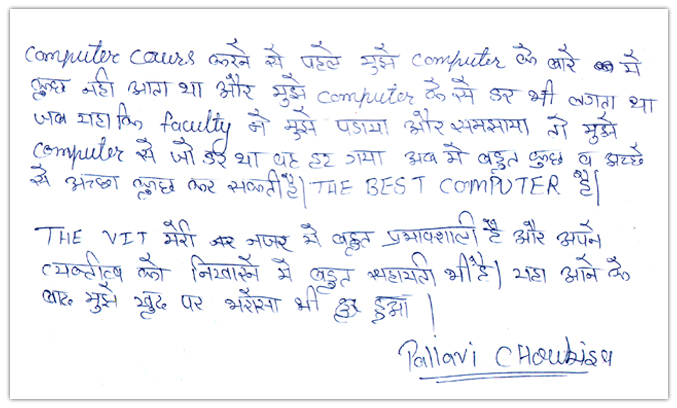 computer cours करने से पहले मुझे computer के बारे में
कुछ नही आता था और मुझे computer के से डर भी लगता था
जब यहा कि faculty ने मुझे पडाया और समझाया तो मुझे
computer से जो डर था वह हट गया अब मे बहुत कुछ व अच्छे
से अच्छा कुछ कर सकती हैं| THE BEST COMPUTER हैं|
THE VIT मेरी नजर में बहुत प्रभावशाली हैं और अपने
व्यक्तीत्व को निखारने मे बहुत सहायती भी हैं| यहा आने के
बाद मुझे खुद पर भरोसा भी हुआ |
Pallavi CHoubisa